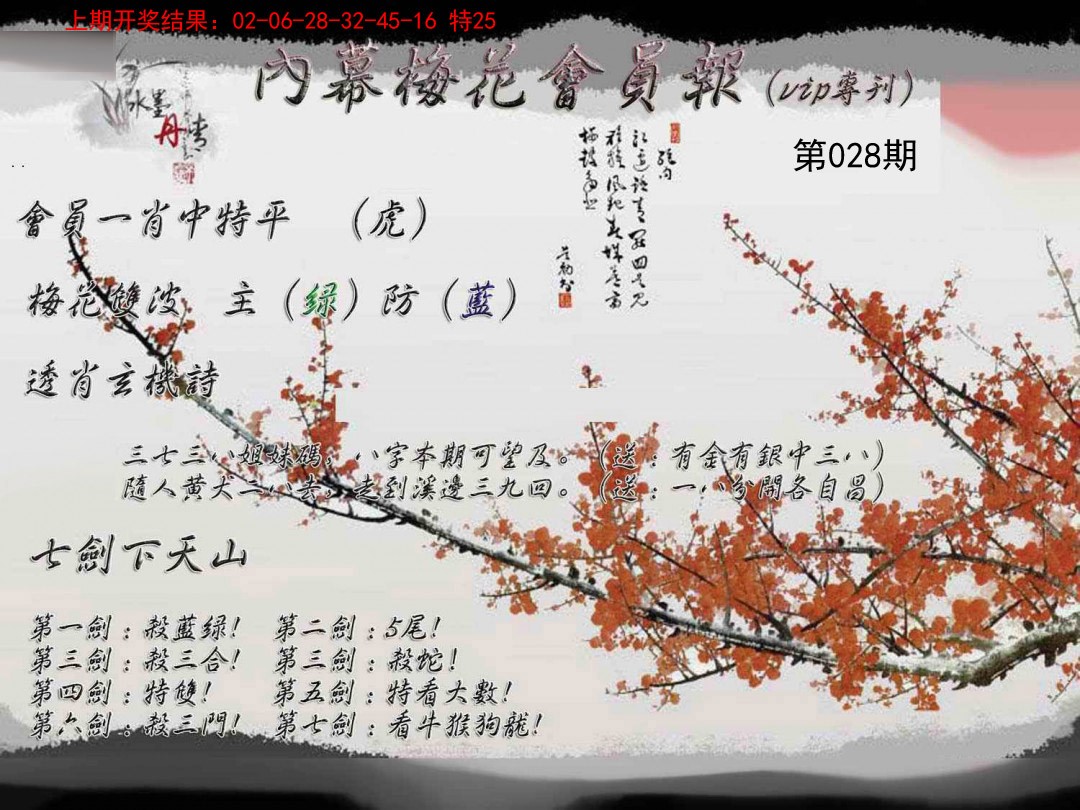 上期开奖结果：02-06-28-32-45-16 特25
內幕梅花會員報（vip專刊）
水墨
丹青
第028期
會員一肖中特平 （虎）
梅花雙波 主（绿）防（藍）
透肖玄機詩
三七三八姐妹碼，八字本期可望及。（送：有金有銀中三八）
隨人黄大二八去，走到溪邊三九四。（送：一八分開各自昌）
七劍下天山
第一劍：殺藍绿！ 第二劍：5尾！
第三劍：殺三合！ 第三劍：殺蛇！
第四劍：特雙！ 第五劍：特看大數！
第六劍：殺三門！ 第七劍：看牛猴狗龍！